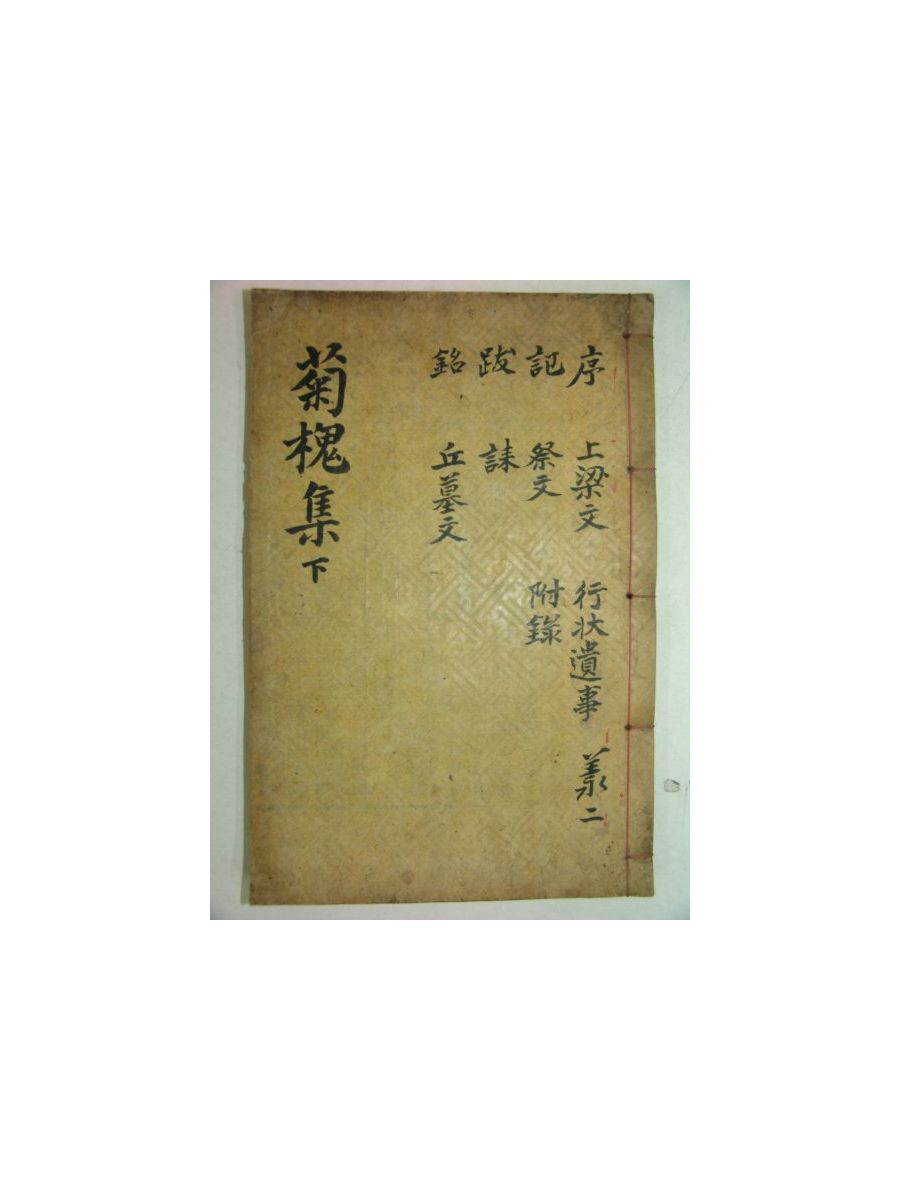 序 上梁文 行状遺事 羕二
記 祭文 附錄
跋 誄
銘 丘墓文
菊槐集 下